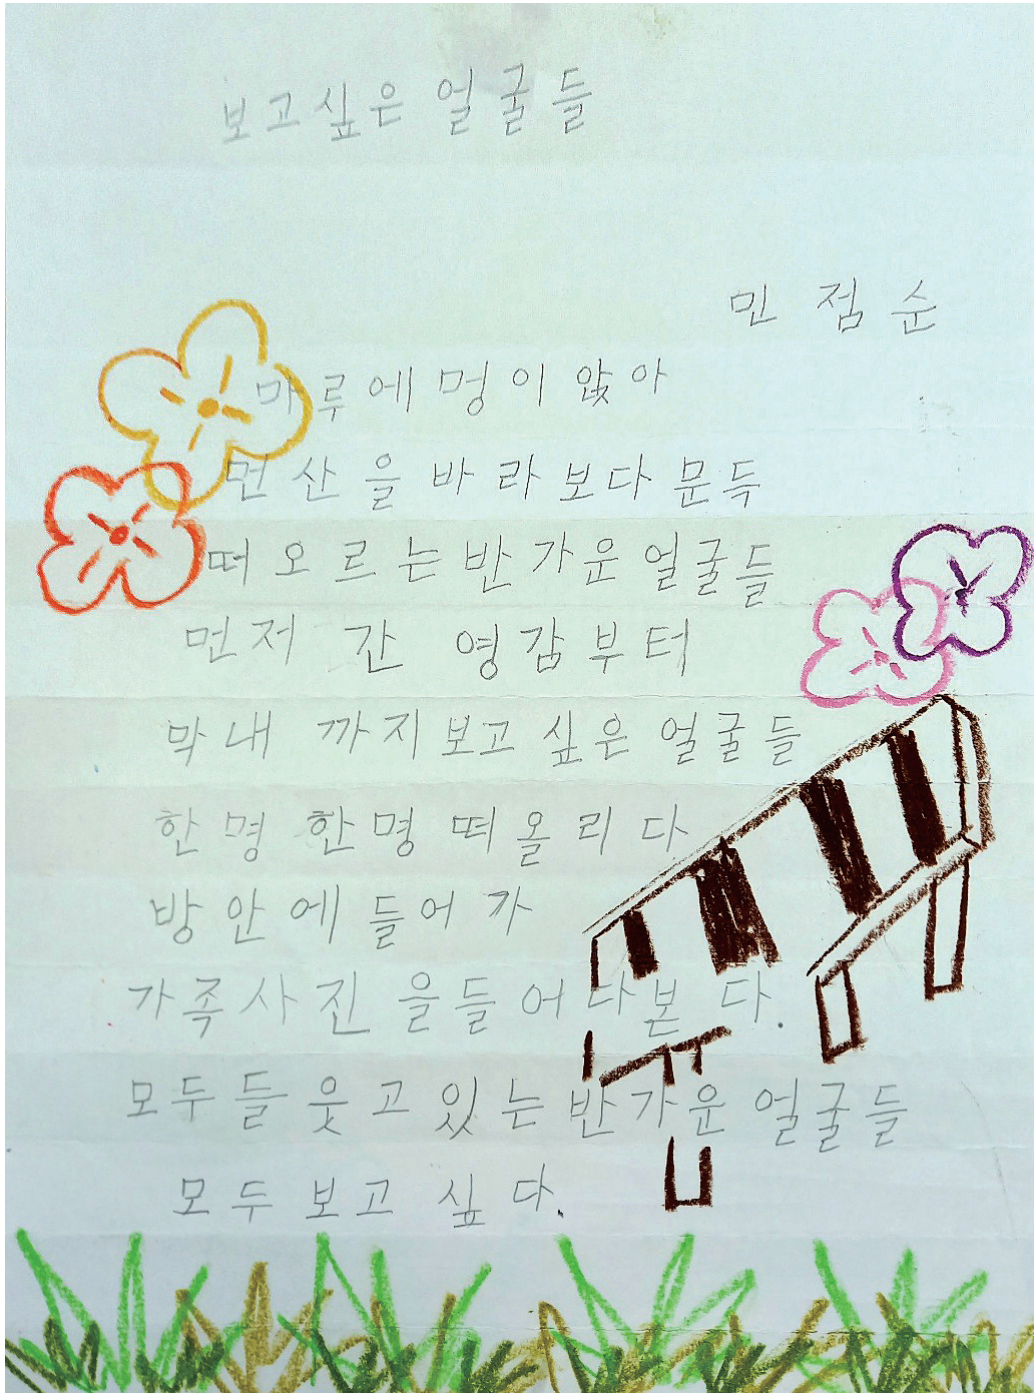 보고싶은 얼굴들
민점순
마루에 멍이 앉아
먼산을 바라보다 문득
떠오르는 반가운 얼굴들
먼저 간 영감부터
막내 까지 보고 싶은 얼굴들
한명 한명 떠올리다
방안에 들어가
가족사진을 들어다본다.
모두들 웃고 있는 반가운 얼굴들
모두 보고 싶다.